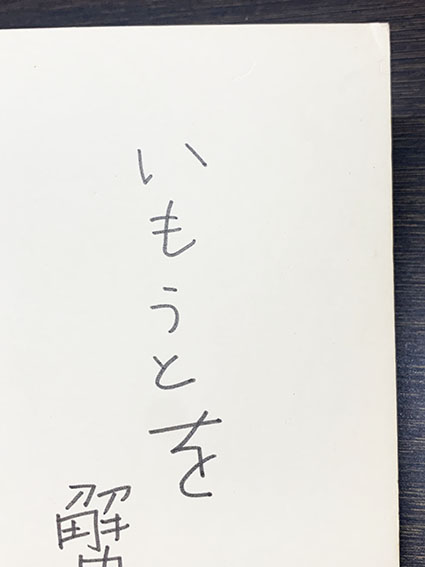 いもうとを
解